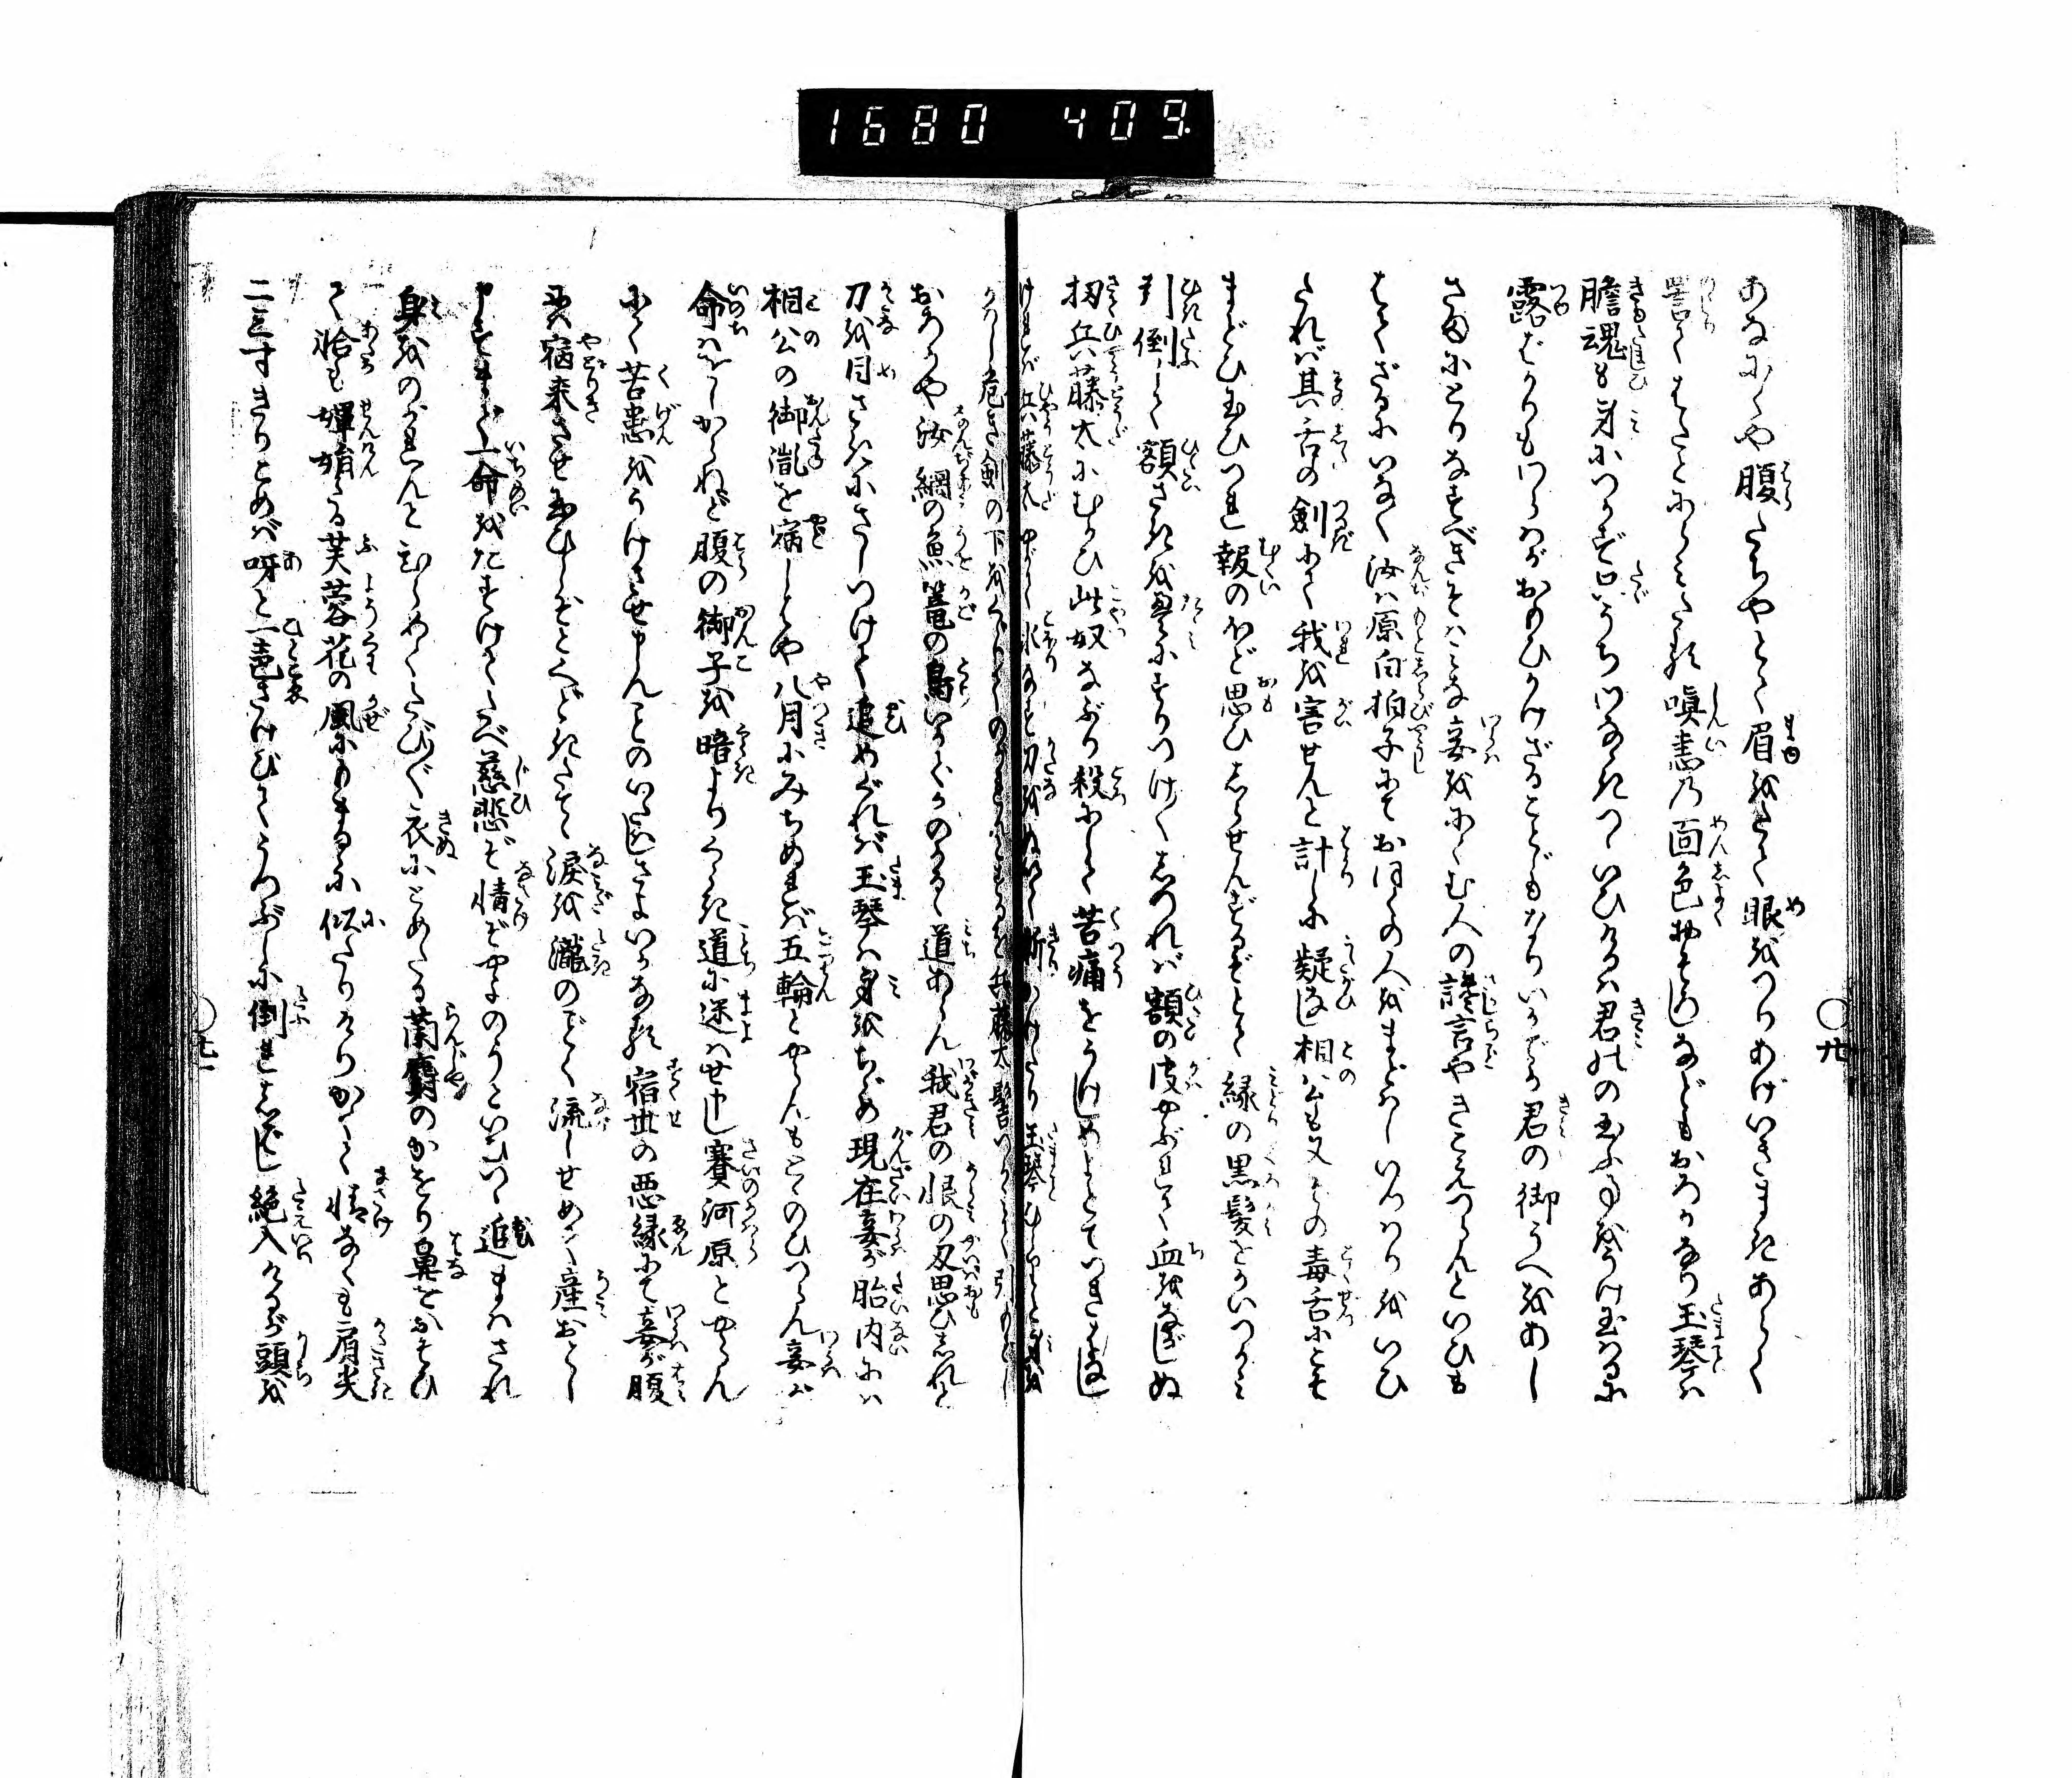 1680 409
あなにくや腹たちやとて眉をたて眼をつりあげいきまきあらく
詈てはたとにらみたる嗔恚乃面色おそろしなどもおろかなり玉琴ハ
膽魂も身につかず口うちわなゝきつゝいひけるハ君ハの玉ふ事を承け玉はるに
露ばかりもわらハがおもひかけざることどもなりいかでか君の御うへをあし
さまにとりなすべきそハみな妾をにくむ人の讒言やきこえつらんといひも
はてざるにいなく汝ハ原白拍子にておほくの人をまどハしいつハりをいひ
たれバ其舌の劔にて我を害せんと計しに疑なし相公も又その毒舌にこそ
まどひ玉ひつれ報のほど思ひしらせんずるぞとて緑の黒髪をかいつかみ
引倒して額ざまを畳にすりつけしつれバ額の皮やぶれて血をながしぬ
扨兵藤太にむかひ此奴なぶり殺にして苦痛をうけしめよとていきまきし
けれバ兵藤太やがて氷なす刀をぬいて斬かけたり玉琴ひらりと身を
かハし危き劔の下をくゞりてのがれんとするを兵藤太髻つかみて引もどし
おろかや汝網の魚篭の鳥いかでかのがるゝ道あらん我君の恨の刄思ひしれと
刀を目さきにさしつけて追めぐれバ玉琴ハ身をちゞめ現在妾が胎内にハ
相公の御胤を宿しとや八月にみちぬれバ五輪とやらんもとゝのひつらん妾が
命ハをしからねど腹の御子を暗よりくらき道に迷ハせ申し賽河原とやらん
にて苦患をうけさせ申さんことのいたハしさよいかなる宿世の悪縁にて妾が腹
に宿来させ玉ひしぞとくどきたてゝ涙を瀧のごとく流しせめて産おとし
申すまで一命をたすけてたべ慈悲ぞ情ぞやよのうといひつゝ追まハされ
身をのがれんとひらめくたびに衣にとめたる蘭麝のかをり鼻をおそひ
て恰も嬋娟たる芙蓉花の風にもまるゝに似たりけりかくて情なくも肩先
二三寸きりこめバ呀と一聲さけびてうつぶしに倒れしばし絶入けるが頭を
〇廿
〇廿一